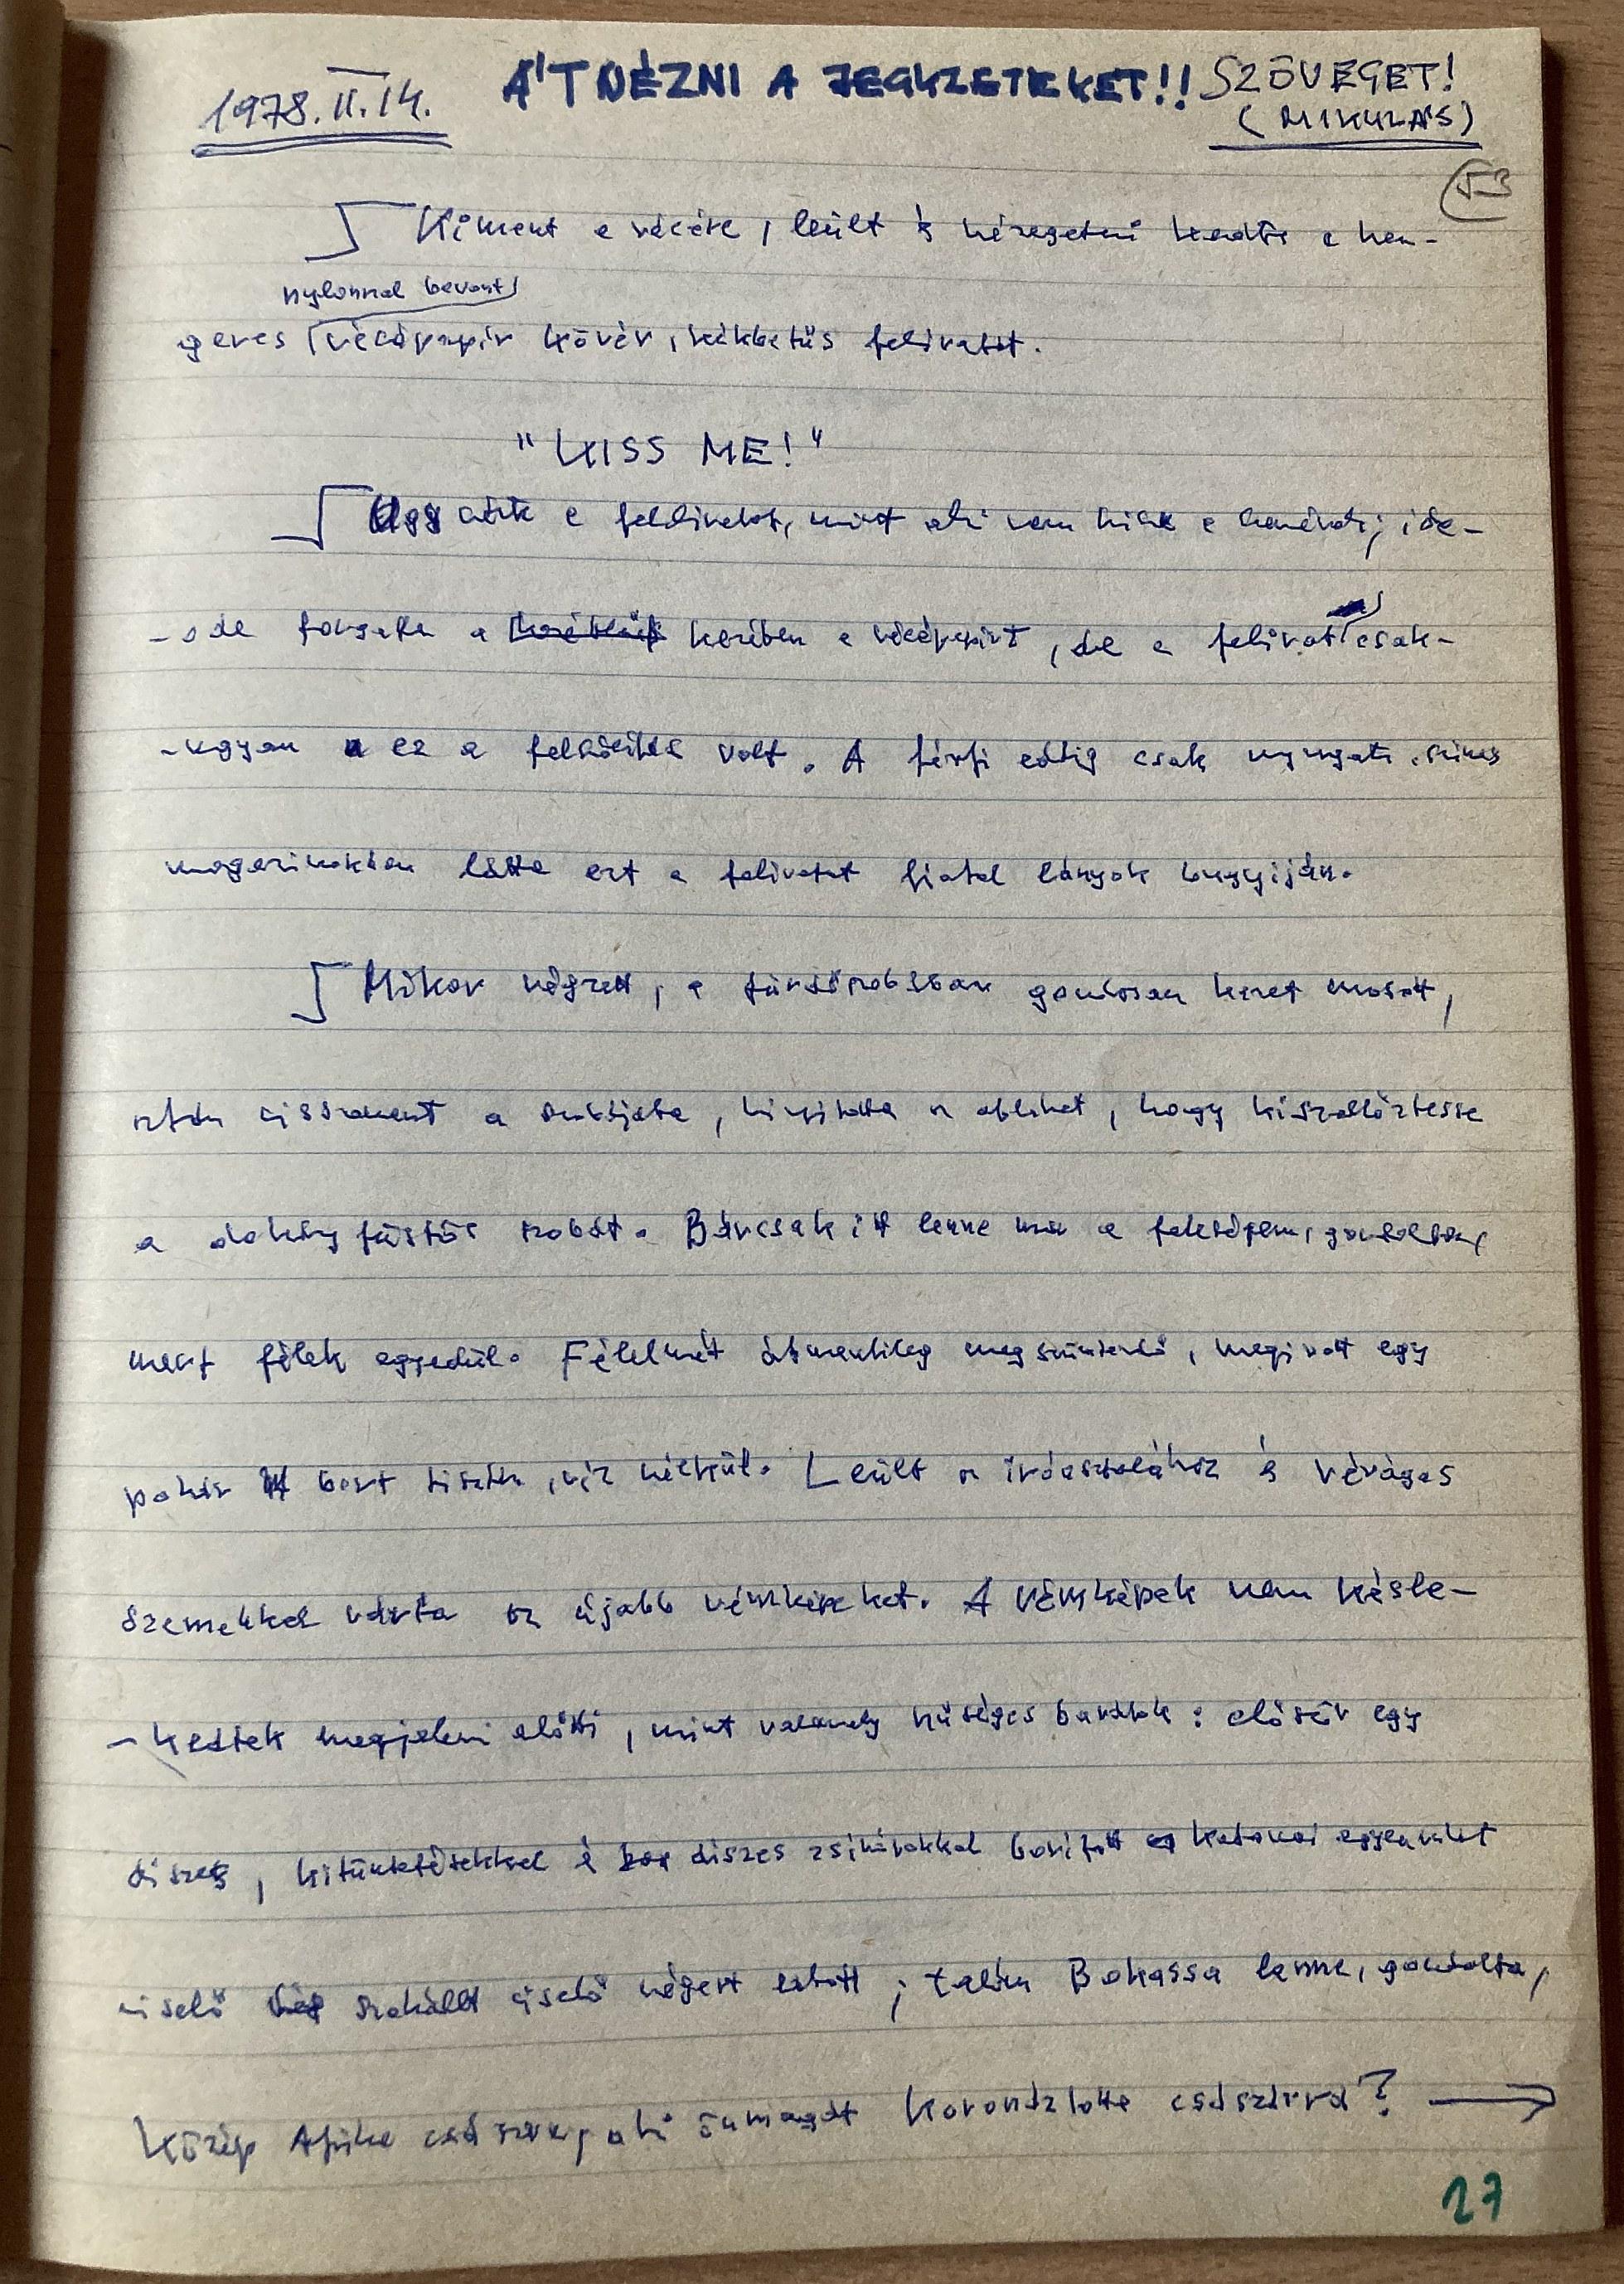 1978. II. 14.
ÁTNÉZNI A JEGYZETEKET!! SZÖVEGET!
(MIKULÁS)
53
Kiment a vécére, leült és nézegetni kezdte a hen-
nylonnal bevont
geres vécépapír kövér, kékbetűs feliratát.
"KISS ME!"
Úgy nézte a feliratot, mint aki nem hisz a szemének; ide-
-oda forgatta a kezében a vécépapírt, de a felirat csak-
-ugyan ez a felszólítás volt. A férfi eddig csak nyugati színes
magazinokban látta ezt a feliratot fiatal lányok bugyiján.
Mikor végzett, a fürdőszobában gondosan kezet mosott,
aztán visszament a szobájába, kinyitotta az ablakot, hogy kiszellőztesse
a dohányfüstös szobát. Bárcsak itt lenne már a feleségem, gondolta,
mert félek egyedül. Félelmét átmenetileg megszüntetendő, megivott egy
pohár bort tisztán, víz nélkül. Leült az íróasztalához és vérages
szemekkel várta az újabb rémképeket. A rémképek nem késle-
-kedtek megjelenni előtte, mint valamely hűséges barátok: először egy
díszes, kitüntetésekkel és díszes zsinórokkal borított katonai egyenruhát
viselő szakállt viselő négert látott; talán Bokassa lenne, gondolta,
Közép Afrika császára, aki önmagát koronáztatta császárrá? →
27